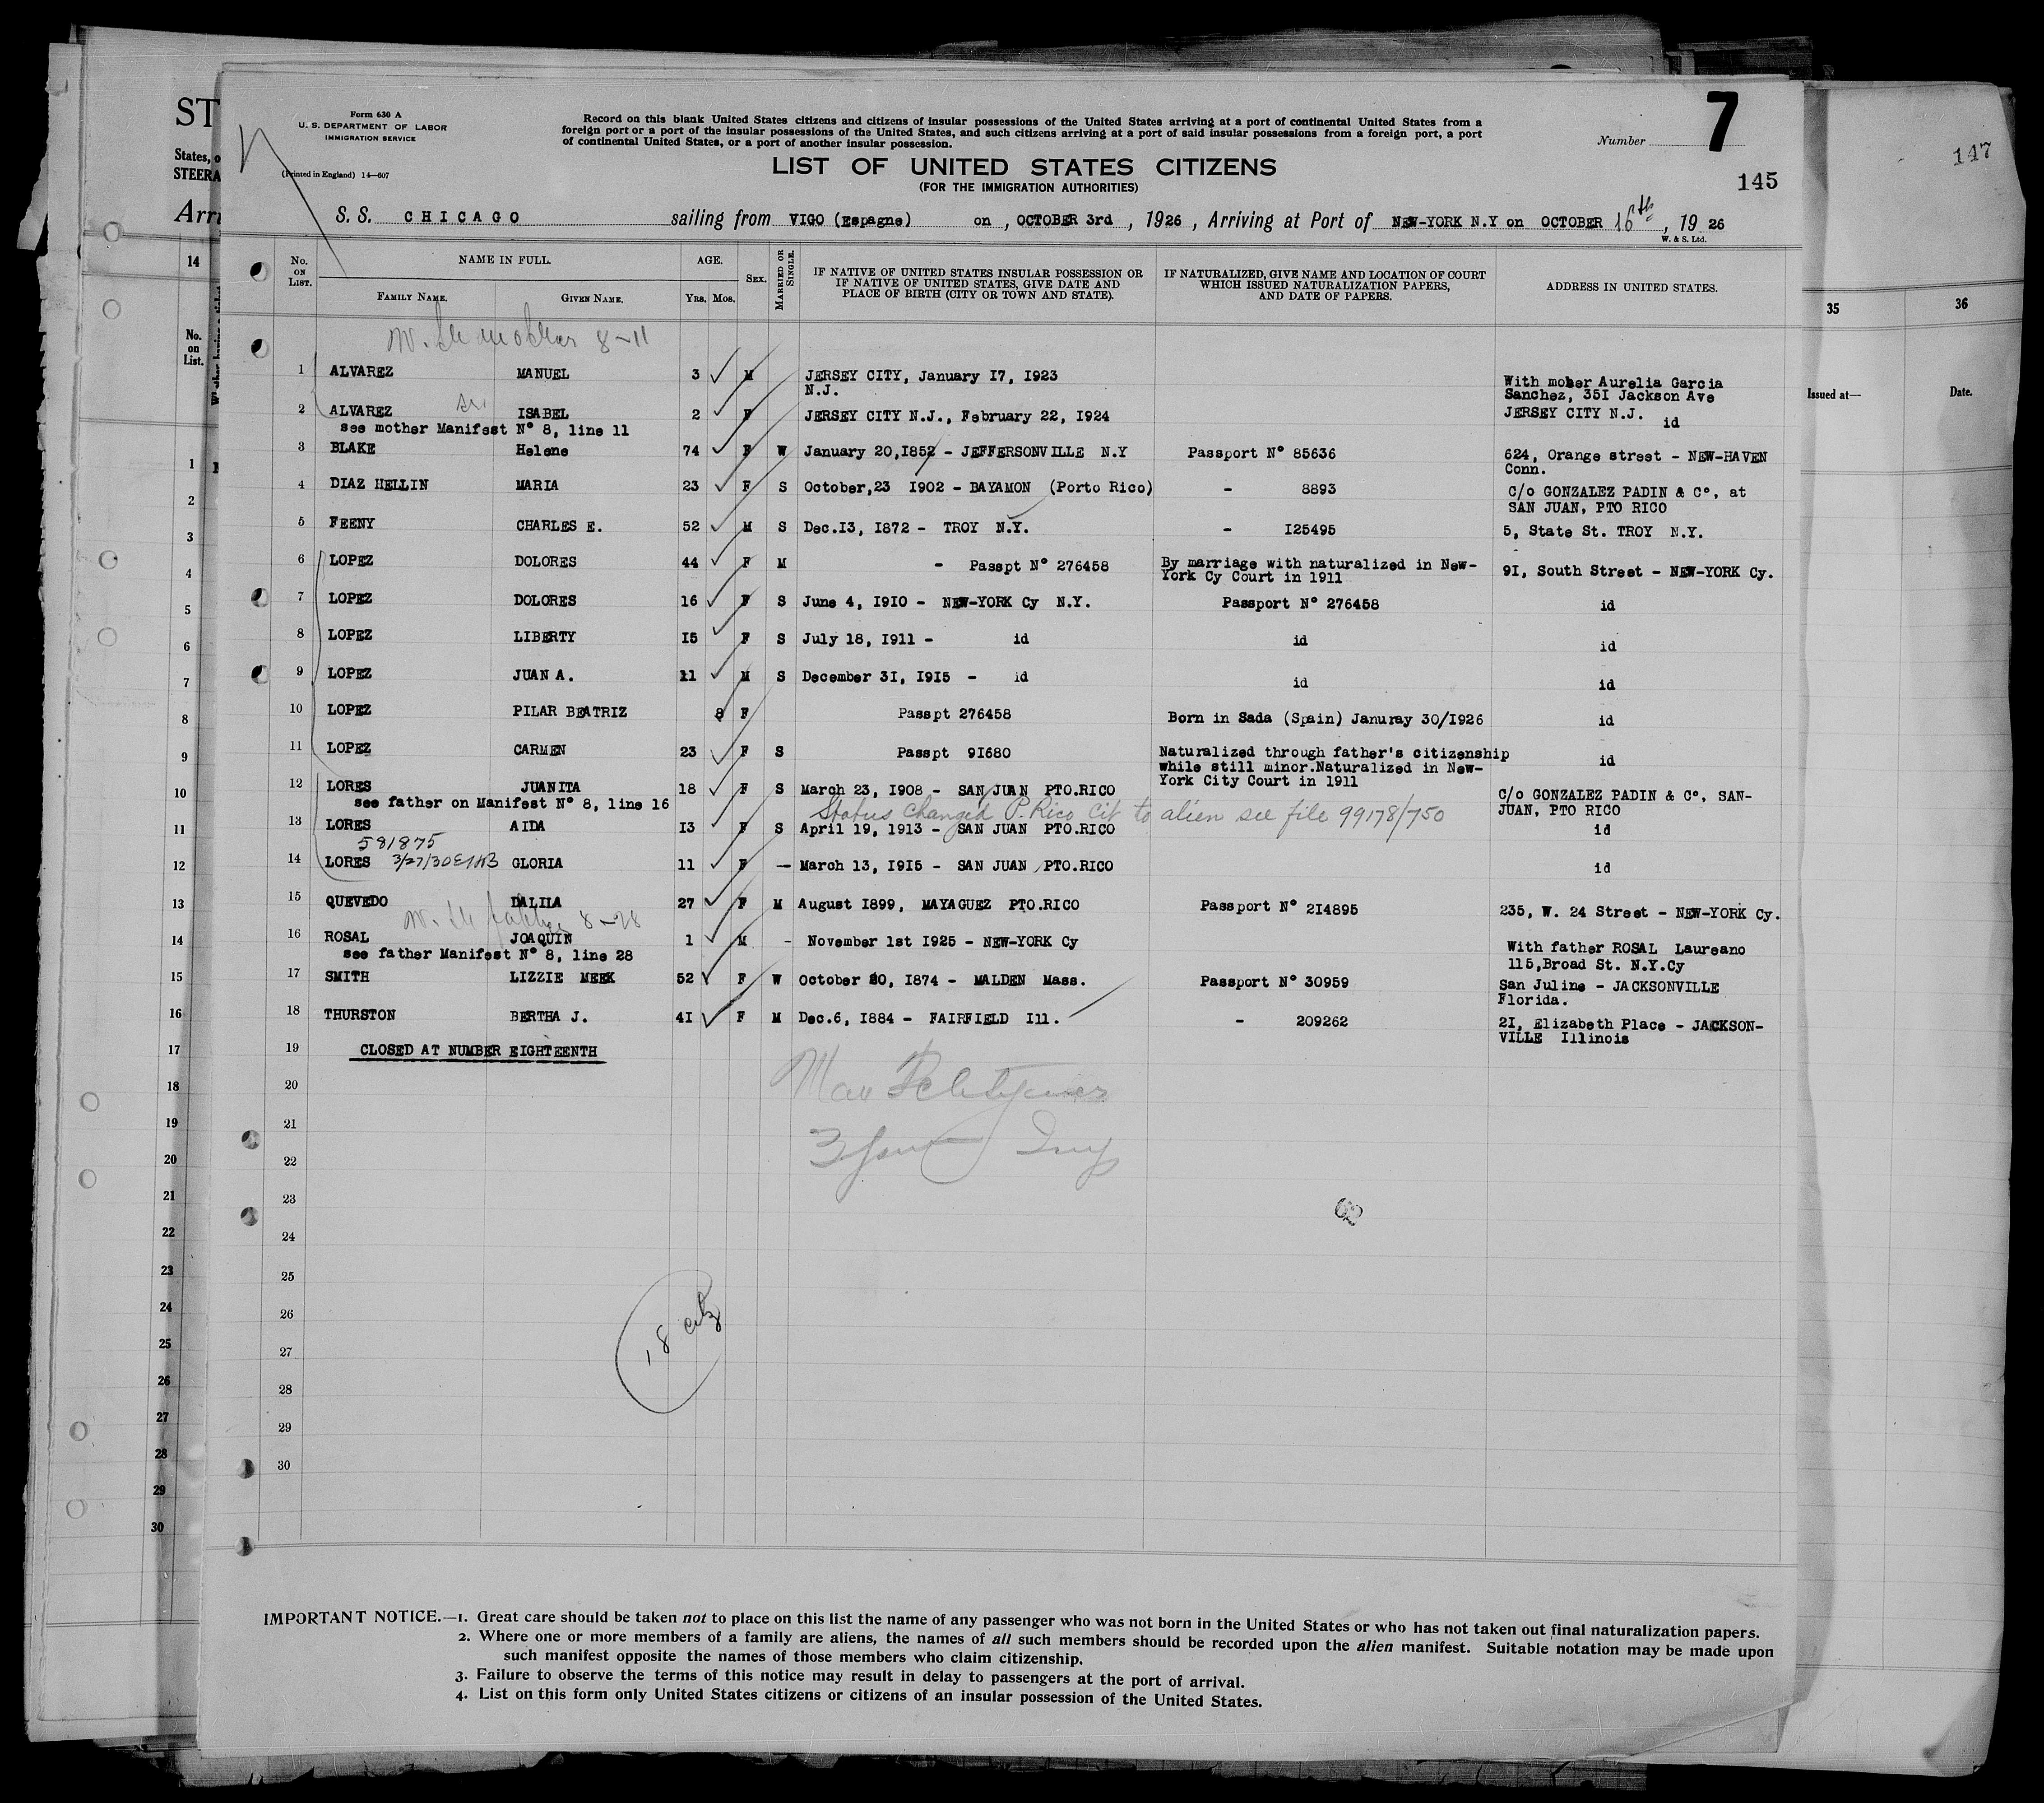 Form 630 A
U. S. DEPARTMENT OF LABOR
IMMIGRATION SERVICE
(Printed in England) 14—607
Record on this blank United States citizens and citizens of insular possessions of the United States arriving at a port of continental United States from a
foreign port or a port of the insular possessions of the United States, and such citizens arriving at a port of said insular possessions from a foreign port, a port
of continental United States, or a port of another insular possession.
Number 7
LIST OF UNITED STATES CITIZENS
(FOR THE IMMIGRATION AUTHORITIES)
145
147
S. S. CHICAGO sailing from VIGO (Espagne) on , OCTOBER 3rd , 1926 , Arriving at Port of NEW-YORK N.Y on OCTOBER 16th , 19 26
W. & S. Ltd.
No. on List.
NAME IN FULL.
Family Name. Given Name.
AGE.
Yrs. Mos.
Sex.
Married or Single.
IF NATIVE OF UNITED STATES INSULAR POSSESSION OR
IF NATIVE OF UNITED STATES, GIVE DATE AND
PLACE OF BIRTH (CITY OR TOWN AND STATE).
IF NATURALIZED, GIVE NAME AND LOCATION OF COURT
WHICH ISSUED NATURALIZATION PAPERS,
AND DATE OF PAPERS.
ADDRESS IN UNITED STATES.
8-11
1 ALVAREZ MANUEL 3 M JERSEY CITY, January 17, 1923
N.J.
With moher Aurelia Garcia
Sanchez, 351 Jackson Ave
2 ALVAREZ ISABEL 2 F JERSEY CITY N.J., February 22, 1924 JERSEY CITY N.J. id
see mother Manifest N° 8, line 11
3 BLAKE Helene 74 F W January 20,1852 - JEFFERSONVILLE N.Y Passport N° 85636 624, Orange street - NEW-HAVEN
Conn.
4 DIAZ HELLIN MARIA 23 F S October,23 1902 - BAYAMON (Porto Rico) - 8893 C/o GONZALEZ PADIN & C°, at
SAN JUAN, PTO RICO
5 FEENY CHARLES E. 52 M S Dec.13, 1872 - TROY N.Y. - 125495 5, State St. TROY N.Y.
6 LOPEZ DOLORES 44 F M - Passpt N° 276458 By marriage with naturalized in New-
York Cy Court in 1911
91, South Street - NEW-YORK Cy.
7 LOPEZ DOLORES 16 F S June 4, 1910 - NEW-YORK Cy N.Y. Passport N° 276458 id
8 LOPEZ LIBERTY 15 F S July 18, 1911 - id id id
9 LOPEZ JUAN A. 11 M S December 31, 1915 - id id id
10 LOPEZ PILAR BEATRIZ 8 F Passpt 276458 Born in Sada (Spain) Januray 30/1926 id
11 LOPEZ CARMEN 23 F S Passpt 91680 Naturalized through father's citizenship
while still minor.Naturalized in New-
York City Court in 1911
id
12 LORES JUANITA 18 F S March 23, 1908 - SAN JUAN PTO.RICO C/o GONZALEZ PADIN & C°, SAN-
JUAN, PTO RICO
see father on Manifest N° 8, line 16
Status changed P. Rico Cit to alien see file 99178/750
13 LORES AIDA 13 F S April 19, 1913 - SAN JUAN PTO.RICO id
581875
14 LORES 3/27/30 GLORIA 11 F — March 13, 1915 - SAN JUAN PTO.RICO id
15 QUEVEDO DALILA 27 F M August 1899, MAYAGUEZ PTO.RICO Passport N° 214895 235, W. 24 Street - NEW-YORK Cy.
8-28
16 ROSAL JOAQUIN 1 M - November 1st 1925 - NEW-YORK Cy With father ROSAL Laureano
115,Broad St. N.Y.Cy
see father Manifest N° 8, line 28
17 SMITH LIZZIE MEEK 52 F W October 20, 1874 - MALDEN Mass. Passport N° 30959 San Juline - JACKSONVILLE
Florida.
18 THURSTON BERTHA J. 41 F M Dec.6, 1884 - FAIRFIELD Ill. - 209262 21, Elizabeth Place - JACKSON-
VILLE Illinois
19 CLOSED AT NUMBER EIGHTEENTH
20
21
22
23
24
25
26
27
28
29
30
18 citz
IMPORTANT NOTICE.—1. Great care should be taken not to place on this list the name of any passenger who was not born in the United States or who has not taken out final naturalization papers.
2. Where one or more members of a family are aliens, the names of all such members should be recorded upon the alien manifest. Suitable notation may be made upon
such manifest opposite the names of those members who claim citizenship.
3. Failure to observe the terms of this notice may result in delay to passengers at the port of arrival.
4. List on this form only United States citizens or citizens of an insular possession of the United States.
ST
States, o
STEERA
Arri
14
No. on List.
1
2
3
4
5
6
7
8
9
10
11
12
13
14
15
16
17
18
19
20
21
22
23
24
25
26
27
28
29
30
35
36
Issued at—
Date.